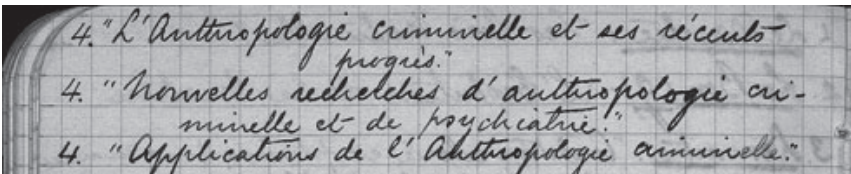 4. "L'Anthropologie criminelle et ses récents
progrès."
4. "Nouvelles recherches d'anthropologie cri-
minelle et de psychiatrie."
4. "Applications de l'Anthropologie criminelle."